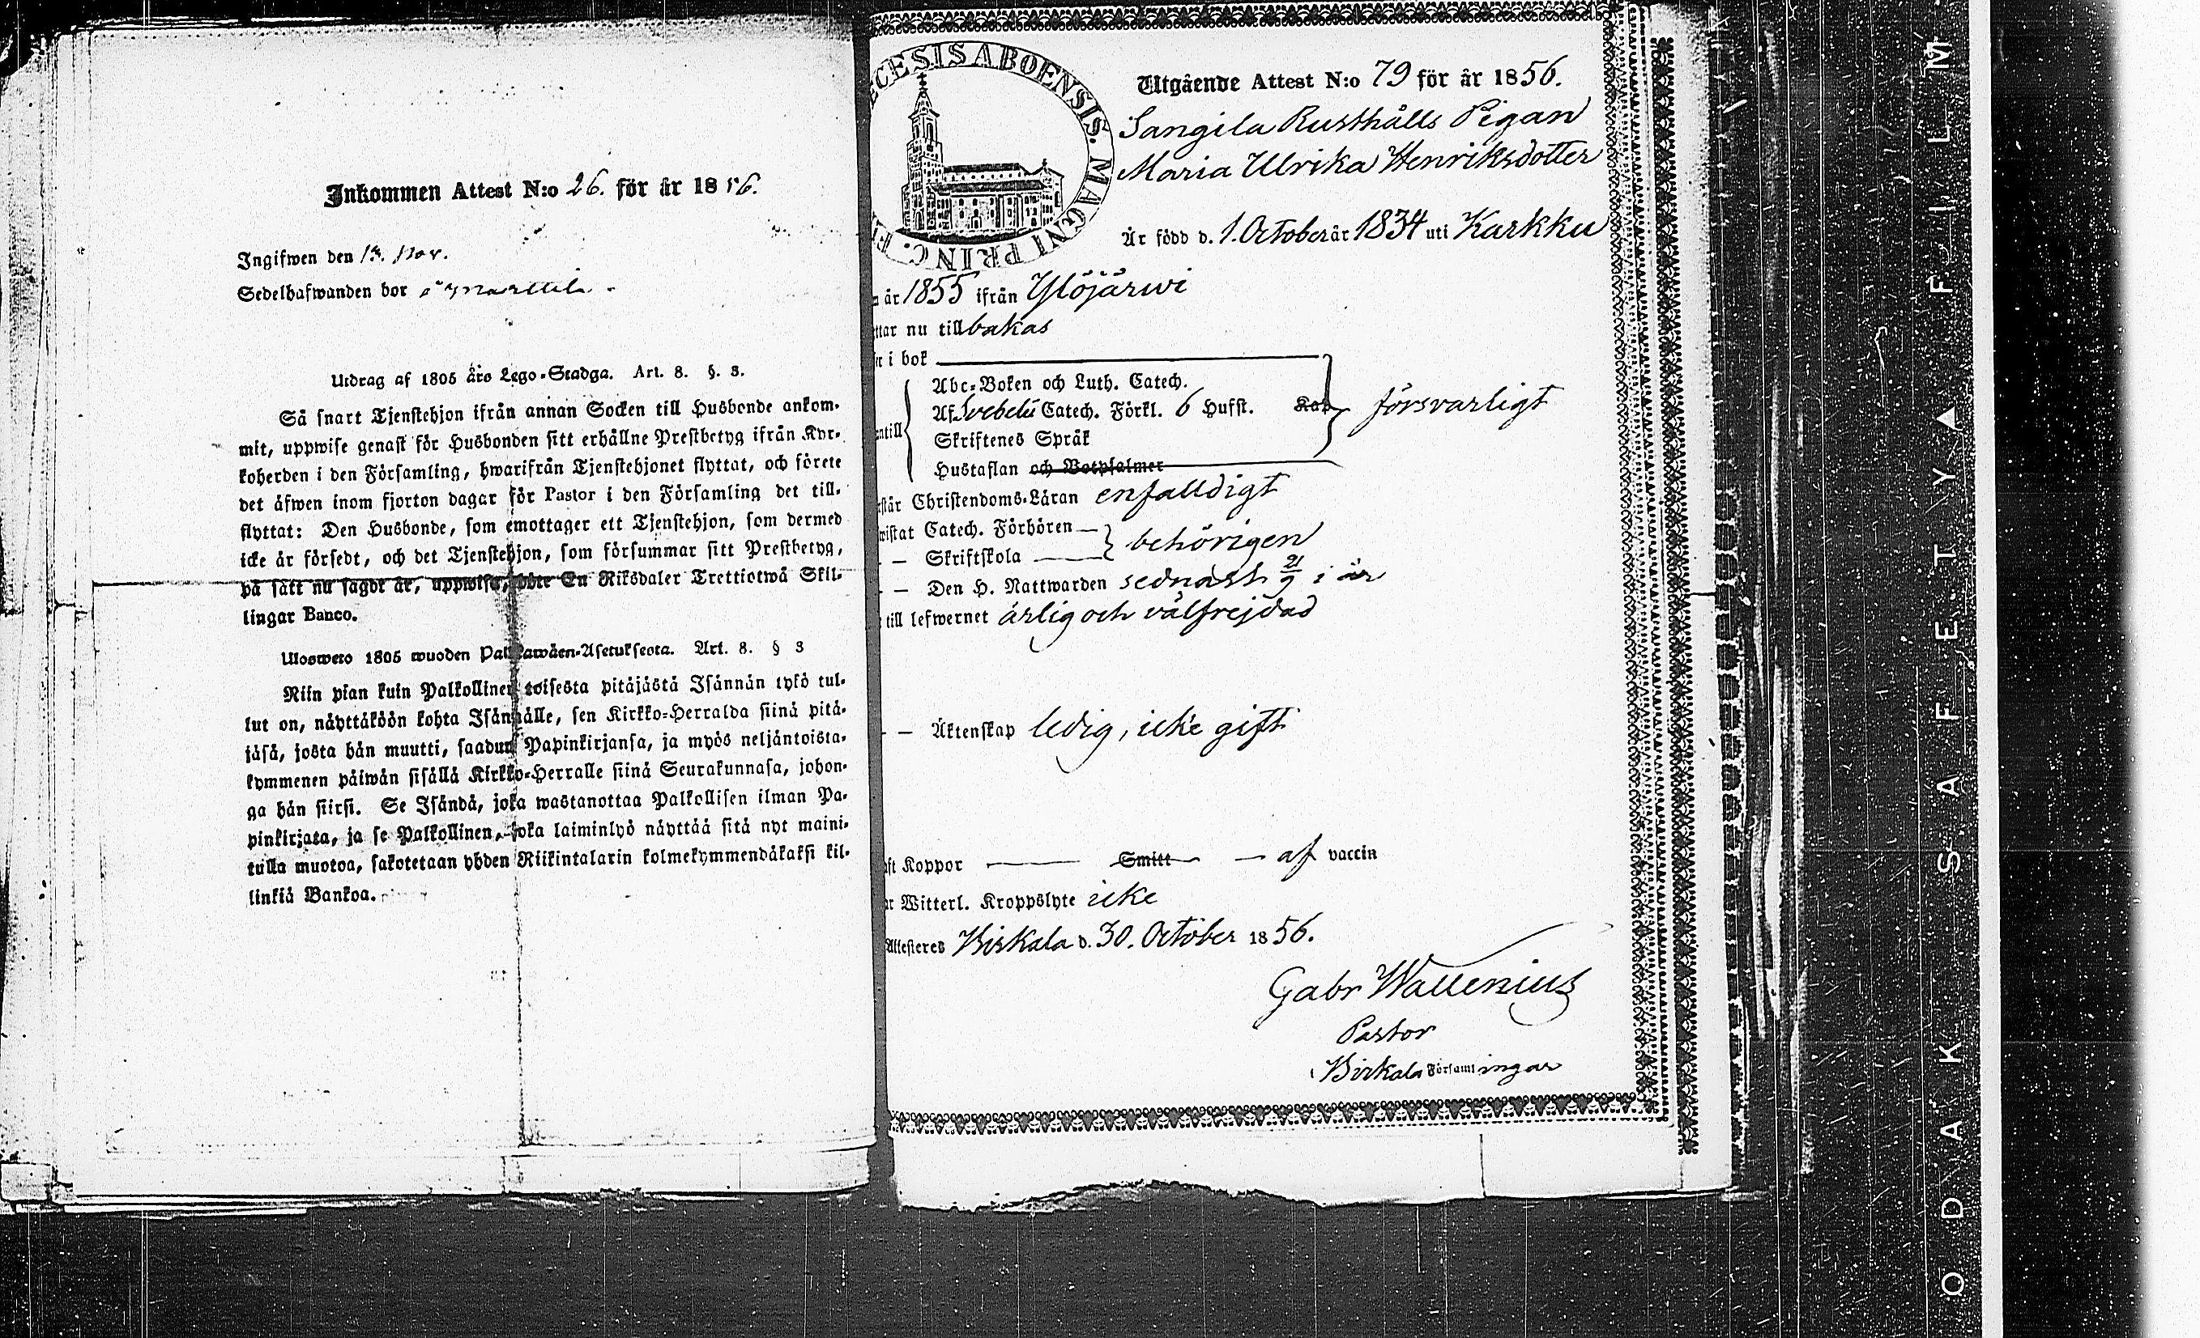 Inkommen Attest N:o 26. för år 1856.
Ingifwen den Nov.
Sedelhafwanden bor å
Utdrag af 1805 års Lego-Stadga. Art. 8. §. 3.
Så snart Tjenstehjon ifrån annan Socken till Husbonde ankom-
mit, uppwise genast för Husbonden sitt erhållne Prestbetyg ifrån Kyr-
koherden i den Församling, hwarifrån Tjenstehjonet flyttat, och förete
det åfwen inom fjorton dagar för Pastor i den Församling det till-
flyttat: Den Husbonde, som emottager ett Tjenstehjon, som dermed
icke är försedt, och det Tjenstehjon, som försummar sitt Prestbetyg,
på sätt nu sagdt är, uppwisa, böte En Riksdaler Trettiotwå Skil-
lingar Banco.
Ulosweto 1805 wuoden Palkkawäen-Asetuksesta. Art. 8. § 3
Niin pian kuin Palkollinen toisesta pitäjästä Isännän tykö tul-
lut on, näyttäköön kohta Isännälle, sen Kirkko-Herralda siinä pitä-
jäsä, josta hän muutti, saadun Papinkirjansa, ja myös neljäntoista-
kymmenen päiwän sisällä Kirkko-Herralle siinä Seurakunnasa, johon-
ga hän siirsi. Se Isändä, joka wastanottaa Palkollisen ilman Pa-
pinkirjata, ja se Palkollinen, joka laiminlyö näyttää sitä nyt maini-
tulla muotoa, sakotetaan yhden Riikintalarin kolmekymmendäkaksi kil-
linkiä Bankoa.
CESIS ABOENSIS. MAGNI PRINC. F
Utgående Attest N:o 79 för år 1856.
Sangila Rusthålls Pigan
Maria Ulrika Henriksdotter
Är född d. 1. October år 1834 uti Karkku
år 1855 ifrån Ylöjärwi
ttar nu tillbakas
i bok
Abc-Boken och Luth. Catech.
Af Svebelii Catech. Förkl. 6 Hufst. Kap försvarligt
ntill
Skriftenes Språk
Hustaflan och Botpsalmer
rstår Christendoms-Läran enfalldigt
wistat Catech. Förhören
— Skriftskola behörigen
— Den H. Nattwarden sednast 21/9 i år
till lefwernet ärlig och välfrejdad
— — Äktenskap ledig, icke gift
ft Koppor Smitt af vaccin
r Witterl. Kroppslyte icke
Attesteres Birkala d. 30. October 1856.
Gabr Wallenius
Pastor
i Birkala Församlingar
KODAK SAFETY FILM